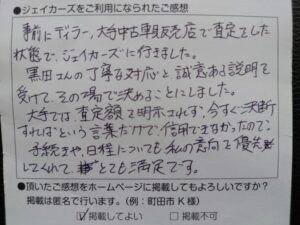 ●ジェイカーズをご利用になられたご感想
事前にディラー、大手中古車販売店で査定をした
状態で、ジェイカーズに行きました。
黒田さんの丁寧な対応と、誠意ある説明を
受けて、その場で決めることにしました。
大手では、査定額を明示されず、今すぐ決断
すればという言葉だけで、信用できなかったので、
手続きや、日程についても私の意向を優先
してくれて、とても満足です。
●頂いたご感想をホームページに掲載してもよろしいですか?
掲載は匿名で行います。(例:町田市K様)
☑掲載してよい □掲載不可